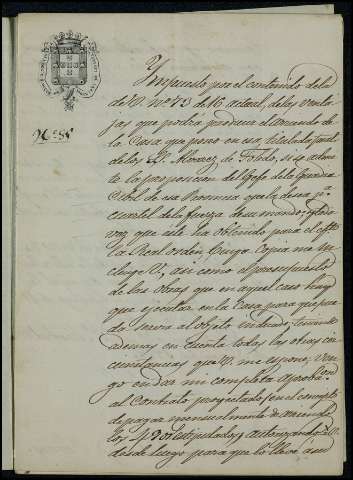 Impuesto por el contenido de la
de V. Nº 72 de 16 actual, de las venta
jas que podrá producir el arriendo de
la Casa que poseo en esa, titulada Jard
de los S.S. Alvarez de Toledo, si se admi
te la proposicion del Gefe de la Guardia
Civil de esa Provincia que la desea pª
cuartel de la fuerza de su mando;
voy que este ha obtenido para el efto
la Real orden cuya Copia me in
cluye V., asi como el presupuesto
de las obras que en aquel caso hay
que ejecutar en la Casa para que pue
da servir al objeto indicado, teniendo
ademas en cuenta todas las otras cir
cunstancias que V. me espone, ven
go en dar mi completa aprobacion
al Contrato proyectado, en el concepto
de pagar mensualmente de arriendo
los 430 estipulados, autorizando á V.
desde luego para que lo lleve á su